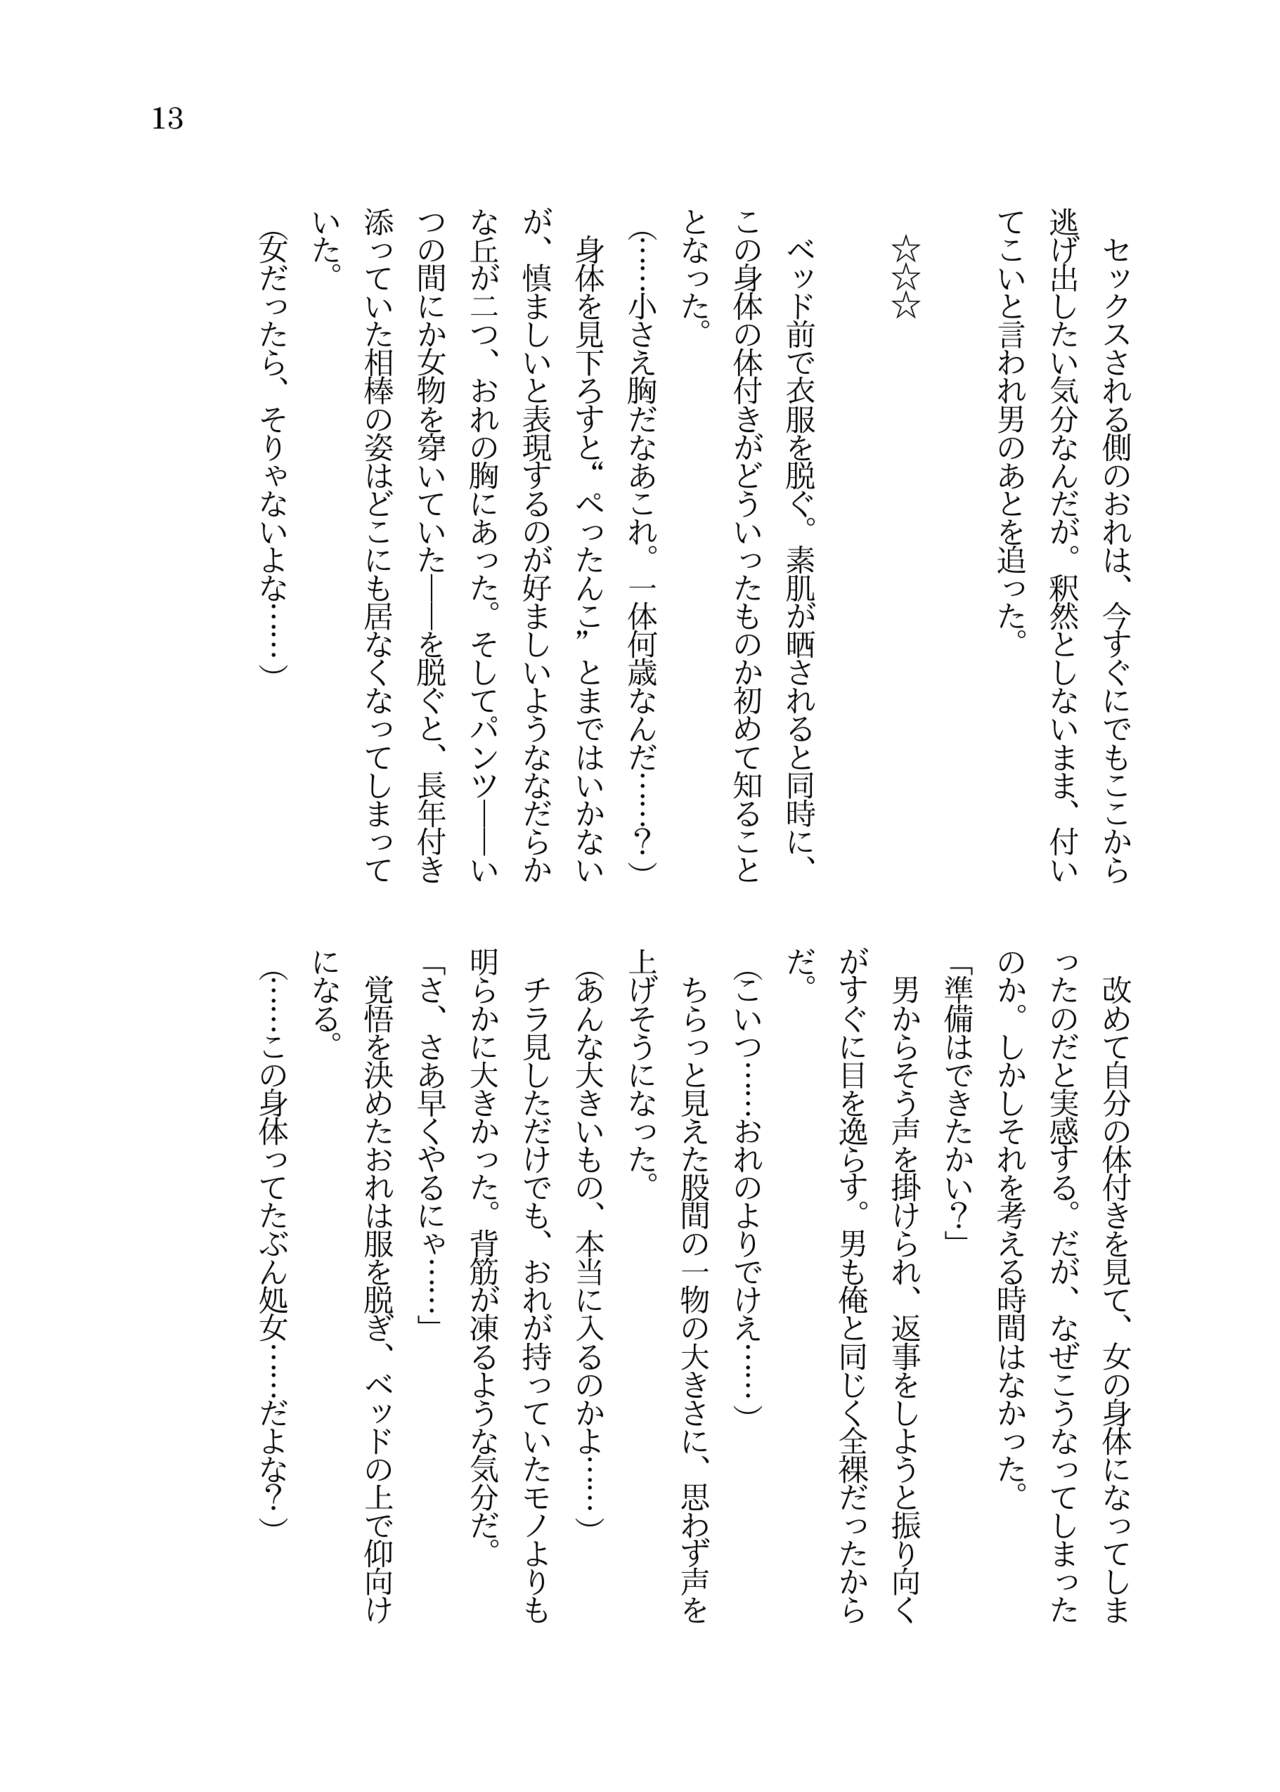 13
セックスされる側のおれは、今すぐにでもここから
逃げ出したい気分なんだが。釈然としないまま、付い
てこいと言われ男のあとを追った。
☆☆☆
ベッド前で衣服を脱ぐ。素肌が晒されると同時に、
この身体の体付きがどういったものか初めて知ること
となった。
（……小さえ胸だなあこれ。一体何歳なんだ……？）
身体を見下ろすと“ぺったんこ”とまではいかない
が、慎ましいと表現するのが好ましいようななだらか
な丘が二つ、おれの胸にあった。そしてパンツ――い
つの間にか女物を穿いていた――を脱ぐと、長年付き
添っていた相棒の姿はどこにも居なくなってしまって
いた。
（女だったら、そりゃないよな……）
改めて自分の体付きを見て、女の身体になってしま
ったのだと実感する。だが、なぜこうなってしまった
のか。しかしそれを考える時間はなかった。
「準備はできたかい？」
男からそう声を掛けられ、返事をしようと振り向く
がすぐに目を逸らす。男も俺と同じく全裸だったから
だ。
（こいつ……おれのよりでけえ……）
ちらっと見えた股間の一物の大きさに、思わず声を
上げそうになった。
（あんな大きいもの、本当に入るのかよ……）
チラ見しただけでも、おれが持っていたモノよりも
明らかに大きかった。背筋が凍るような気分だ。
「さ、さあ早くやるにゃ……」
覚悟を決めたおれは服を脱ぎ、ベッドの上で仰向け
になる。
（……この身体ってたぶん処女……だよな？）